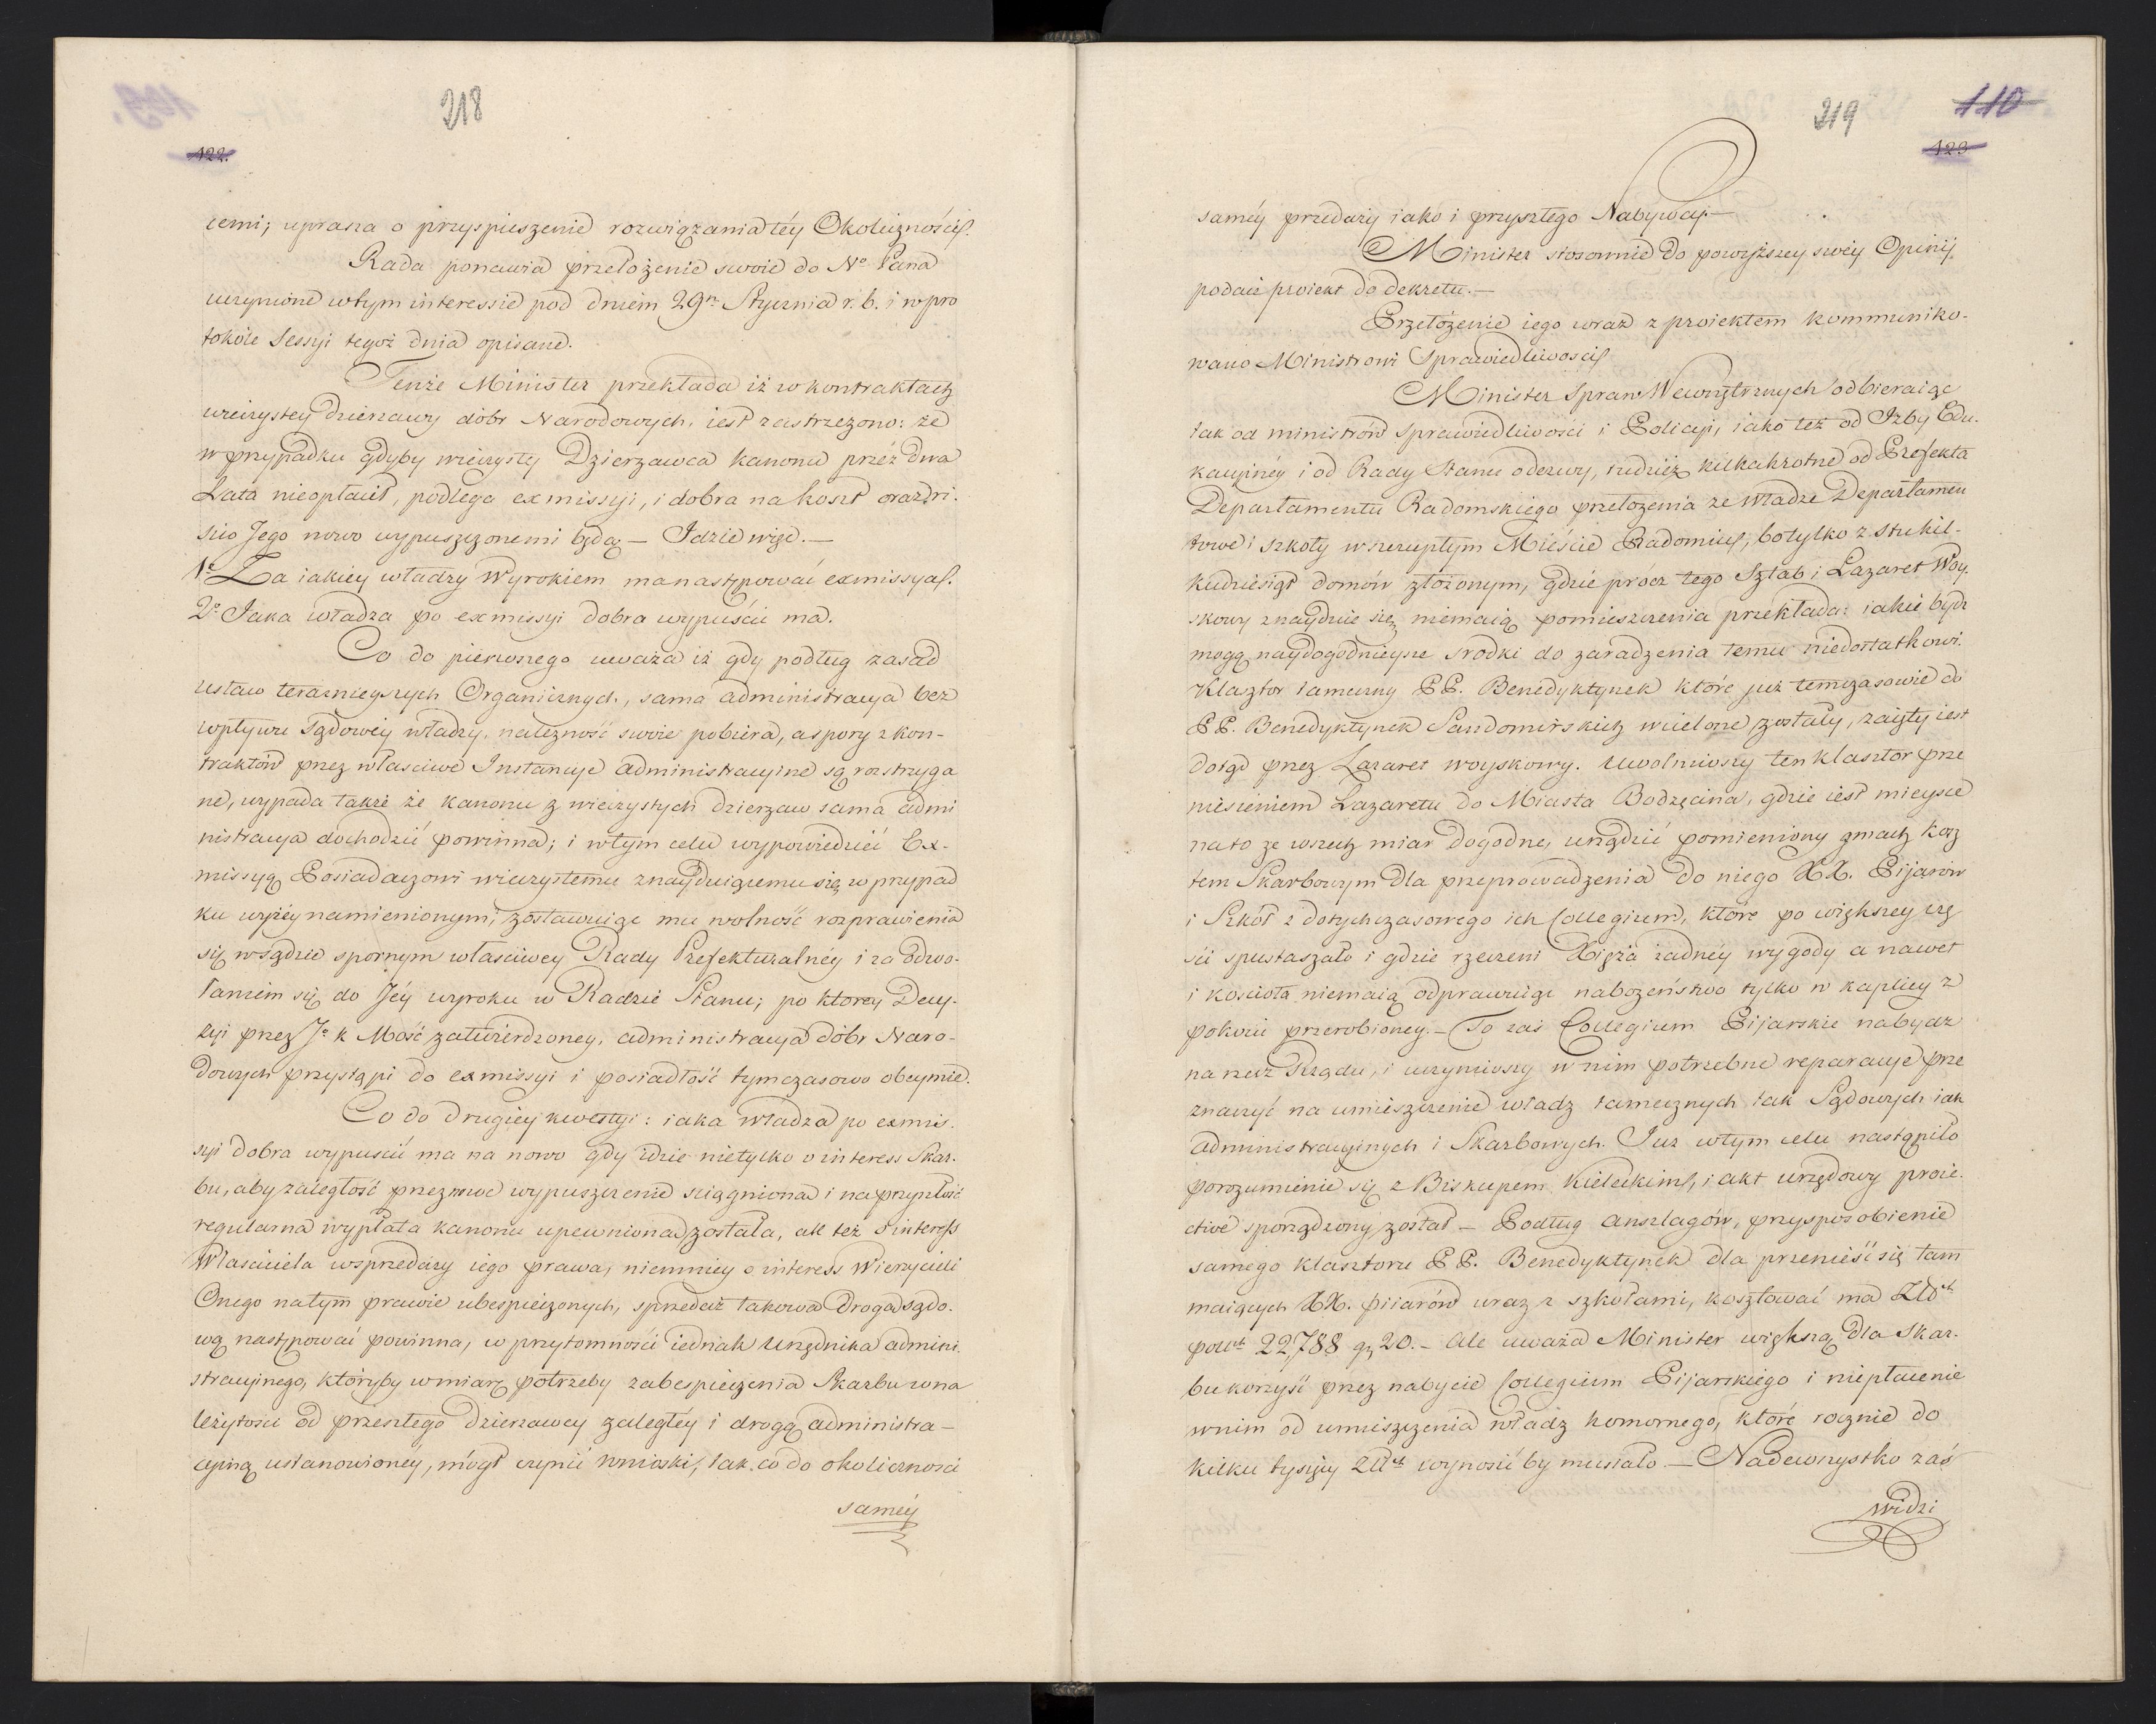 218
122.
cemi; uprasza o przyspieszenie rozwiązania téy Okoliczności.
Rada ponawia przełożenie swoie do No Pana
uczynione w tym interessie pod dniem 29n Stycznia r. b. i w pro
tokóle Sessyi tegoż dnia opisane.
Tenże Minister przekłada iż w kontraktach
wieczystey dzierzawy dóbr Narodowych, iest zastrzeżono: że
w przypadku gdyby wieczysty Dzierzawca kanonu przéz dwa
Lata nieopłacił, podlega exmissyi, i dobra na koszt oraz ri-
sico Jego nowo wypuszczonemi będą — Idzie więc. —
1o Za iakiey władzy Wyrokiem ma następować exmissya.
2o Jaka władza po exmissyi dobra wypuścić ma.
Co do pierwszego uważa iż gdy podług zasad
ustaw teraznieyszych Organicznych, sama administracya bez
wpływu sądowéy władzy, należność swoie pobiera, a spory z kon-
traktów przez właściwe Instancye administracyine są rozstrzyga
ne, wypada także że kanonu z wieczystych dzierzaw sama admi
nistracya dochodzić powinna; i w tym celu wypowiedzieć Ex-
missyą Posiadaczowi wieczystemu znayduiącemu się w przypad
ku wyżéy namienionym, zostawuiąc mu wolność rozprawienia
się w sądzie spornym właściwey Rady Prefekturalnéy i za odwo-
łaniem się do Jéy wyroku w Radzie Stanu; po ktorey Decy-
zyi przez Je k Mość zatwierdzoney, administracya dóbr Naro-
dowych przystąpi do exmissyi i posiadłość tymczasowo obeymie.
Co do drugiéy kwestyi: iaka Władza po exmis-
syi dobra wypuścić ma na nowo gdy idzie nietylko o interess Skar-
bu, aby zaległość przez nowe wypuszczenie sciągniona i na przyszłość
regularna wypłata kanonu upewniona została, ale też o interess
Właściciela w sprzedaży iego prawa, niemniey o interess Wierzycieli
Onego na tym prawie ubespieczonych, sprzedaż takowa Drogą sądo-
wą następować powinna, w przytomności iednak Urzędnika admini-
stracyinego, któryby w miarę potrzeby zabespieczenia Skarbu w na
leżytości od przeszłego Dzierzawcy zaległéy i drogą administra-
cyiną ustanowionéy, mógł czynić wnioski, tak co do okoliczności
saméy
219
110
123
saméy przedaży iako i przyszłego Nabywcy. —
Minister stosownie do powyższey swéy Opinij,
podaie proiekt do dekretu. —
Przełożenie iego wraz z proiektem kommuniko-
wano Ministrowi Sprawiedliwości
Minister Spraw Wewnętrznych odbieraiąc
tak od ministrów Sprawiedliwości i Policyi, iako też od Izby Edu-
kacyinéy i od Rady Stanu odezwy, tudzież kilkakrotne od Prefekta
Departamentu Radomskiego przełożenia że Władze Departamen
towe i szkoły w szczupłym Mieście Radomiu, bo tylko z stu kil-
kudziesiąt domów złożonym, gdzie prócz tego Sztab i Lazaret Woy-
skowy znayduie się, niemaią pomieszczenia przekłada: iakie bydź
mogą naydogodnieysze srodki do zaradzenia temu niedostatkowi.
Klasztor tameczny PP. Benedyktynek które już temczasowie do
PP. Benedyktynek Sandomirskich wcielone zostały, zaięty iest
dotąd przez Lazaret woyskowy. Uwolniwszy ten klasztor prze
niesieniem Lazaretu do Miasta Bodzęcina, gdzie iest mieysce
na to ze wszech miar Dogodne, urządzić pomieniony gmach kosz
tem Skarbowym dla przeprowadzenia do niego XX. Pijarów
i Szkół z dotychczasowego ich Collegium, które po większey czę
ści spustaszało i gdzie rzeczeni Xięża żadnéy wygody a nawet
i kościoła niemaią odprawuiąc nabożeństwo tylko w kaplicy z
pokoiu przerobioney. — To zaś Collegium Pijarskie nabydź
na rzecz Rządu, i uczyniwszy w nim potrzebne reparacye prze
znaczyć na umieszczenie władz tamecznych tak Sądowych iak
administracyinych i Skarbowych. Juz w tym celu nastąpiło
porozumienie się z Biskupem Kieleckim, i akt urzędowy proie-
ctive sporządzony został — Podług anszlagów, przysposobienie
samego klasztoru PP. Benedyktynek dla przenieść się tam
maiących XX. pijarów wraz z szkołami, kosztować ma Złtch
polch 22,788 gr 20. — Ale uważa Minister większą dla Skar-
bu korzyść przez nabycie Collegium Pijarskiego i niepłacenie
w nim od umieszczenia władz komornego, któré rocznie do
kilku tysięcy Złtch wynosić by musiało — Nadewszystko zaś
widzi